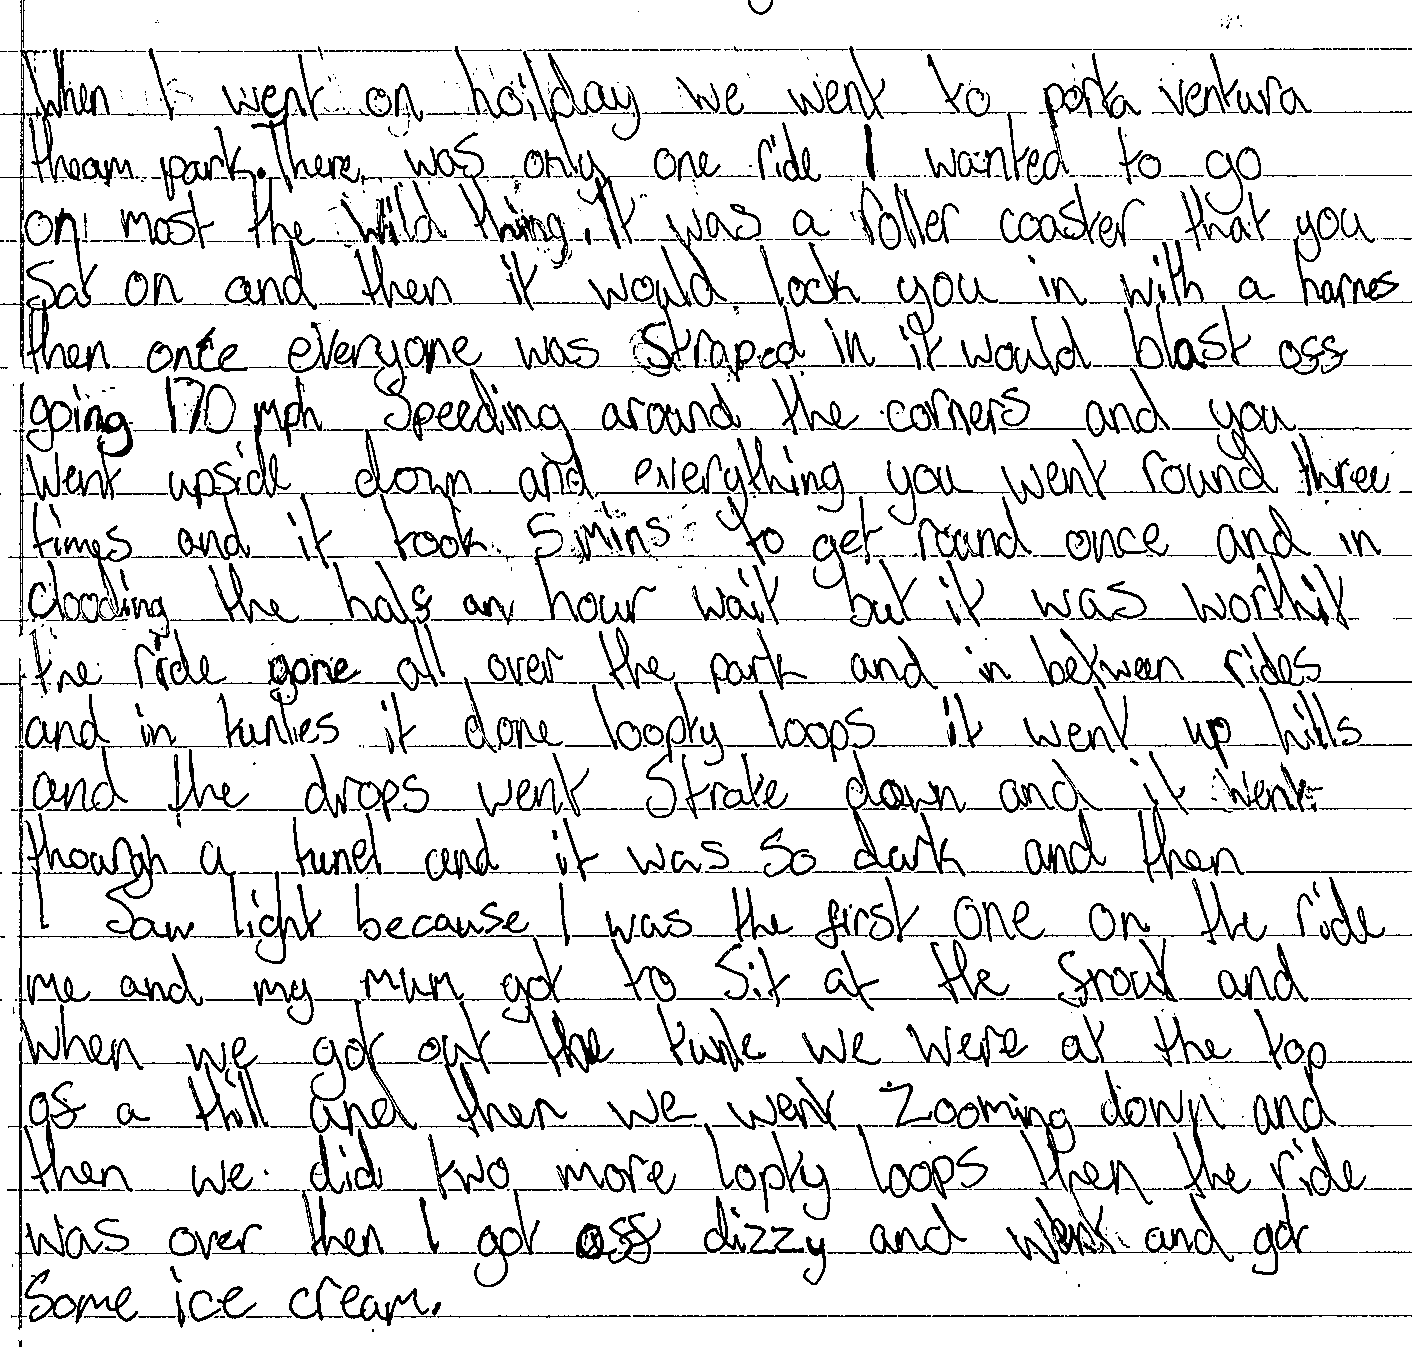 When I went on hoilday we went to porta ventura
theam park. There was only one ride I wanted to go
on most the Wild thing. It was a roller coaster that you
sat on and then it would lock you in with a harnes
then once everyone was straped in it would blast off
going 170 mph speeding around the corners and you
went upside down and everything you went round three
times and it took 5 mins to get round once and in
clooding the half an hour wait but it was worthit
the ride gone all over the park and in between rides
and in tunles it done loopty loops it went up hills
and the drops went strate down and it went
thoargh a tunel and it was so dark and then
I saw light because I was the first one on the ride
me and my mum got to sit at the frout and
when we got out the tunle we were at the top
of a hill and then we went zooming down and
then we did two more lopty loops then the ride
was over then I got off dizzy and went and got
some ice cream.